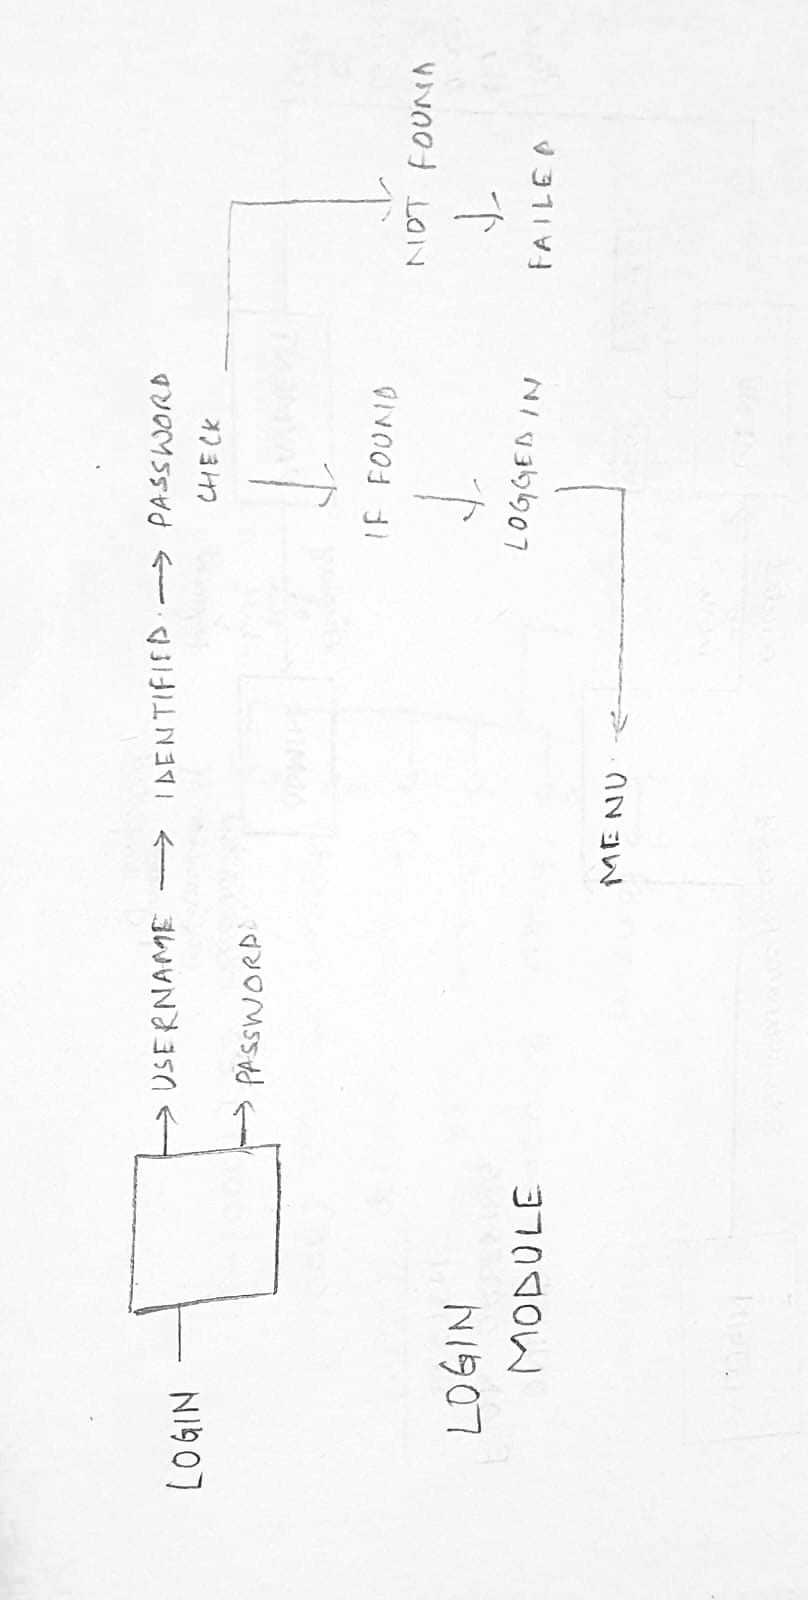 LOGIN
USERNAME
IDENTIFIED
PASSWORD
CHECK
PASSWORD
IF FOUND
LOGGED IN
NOT FOUND
FAILED
MENU
LOGIN
MODULE